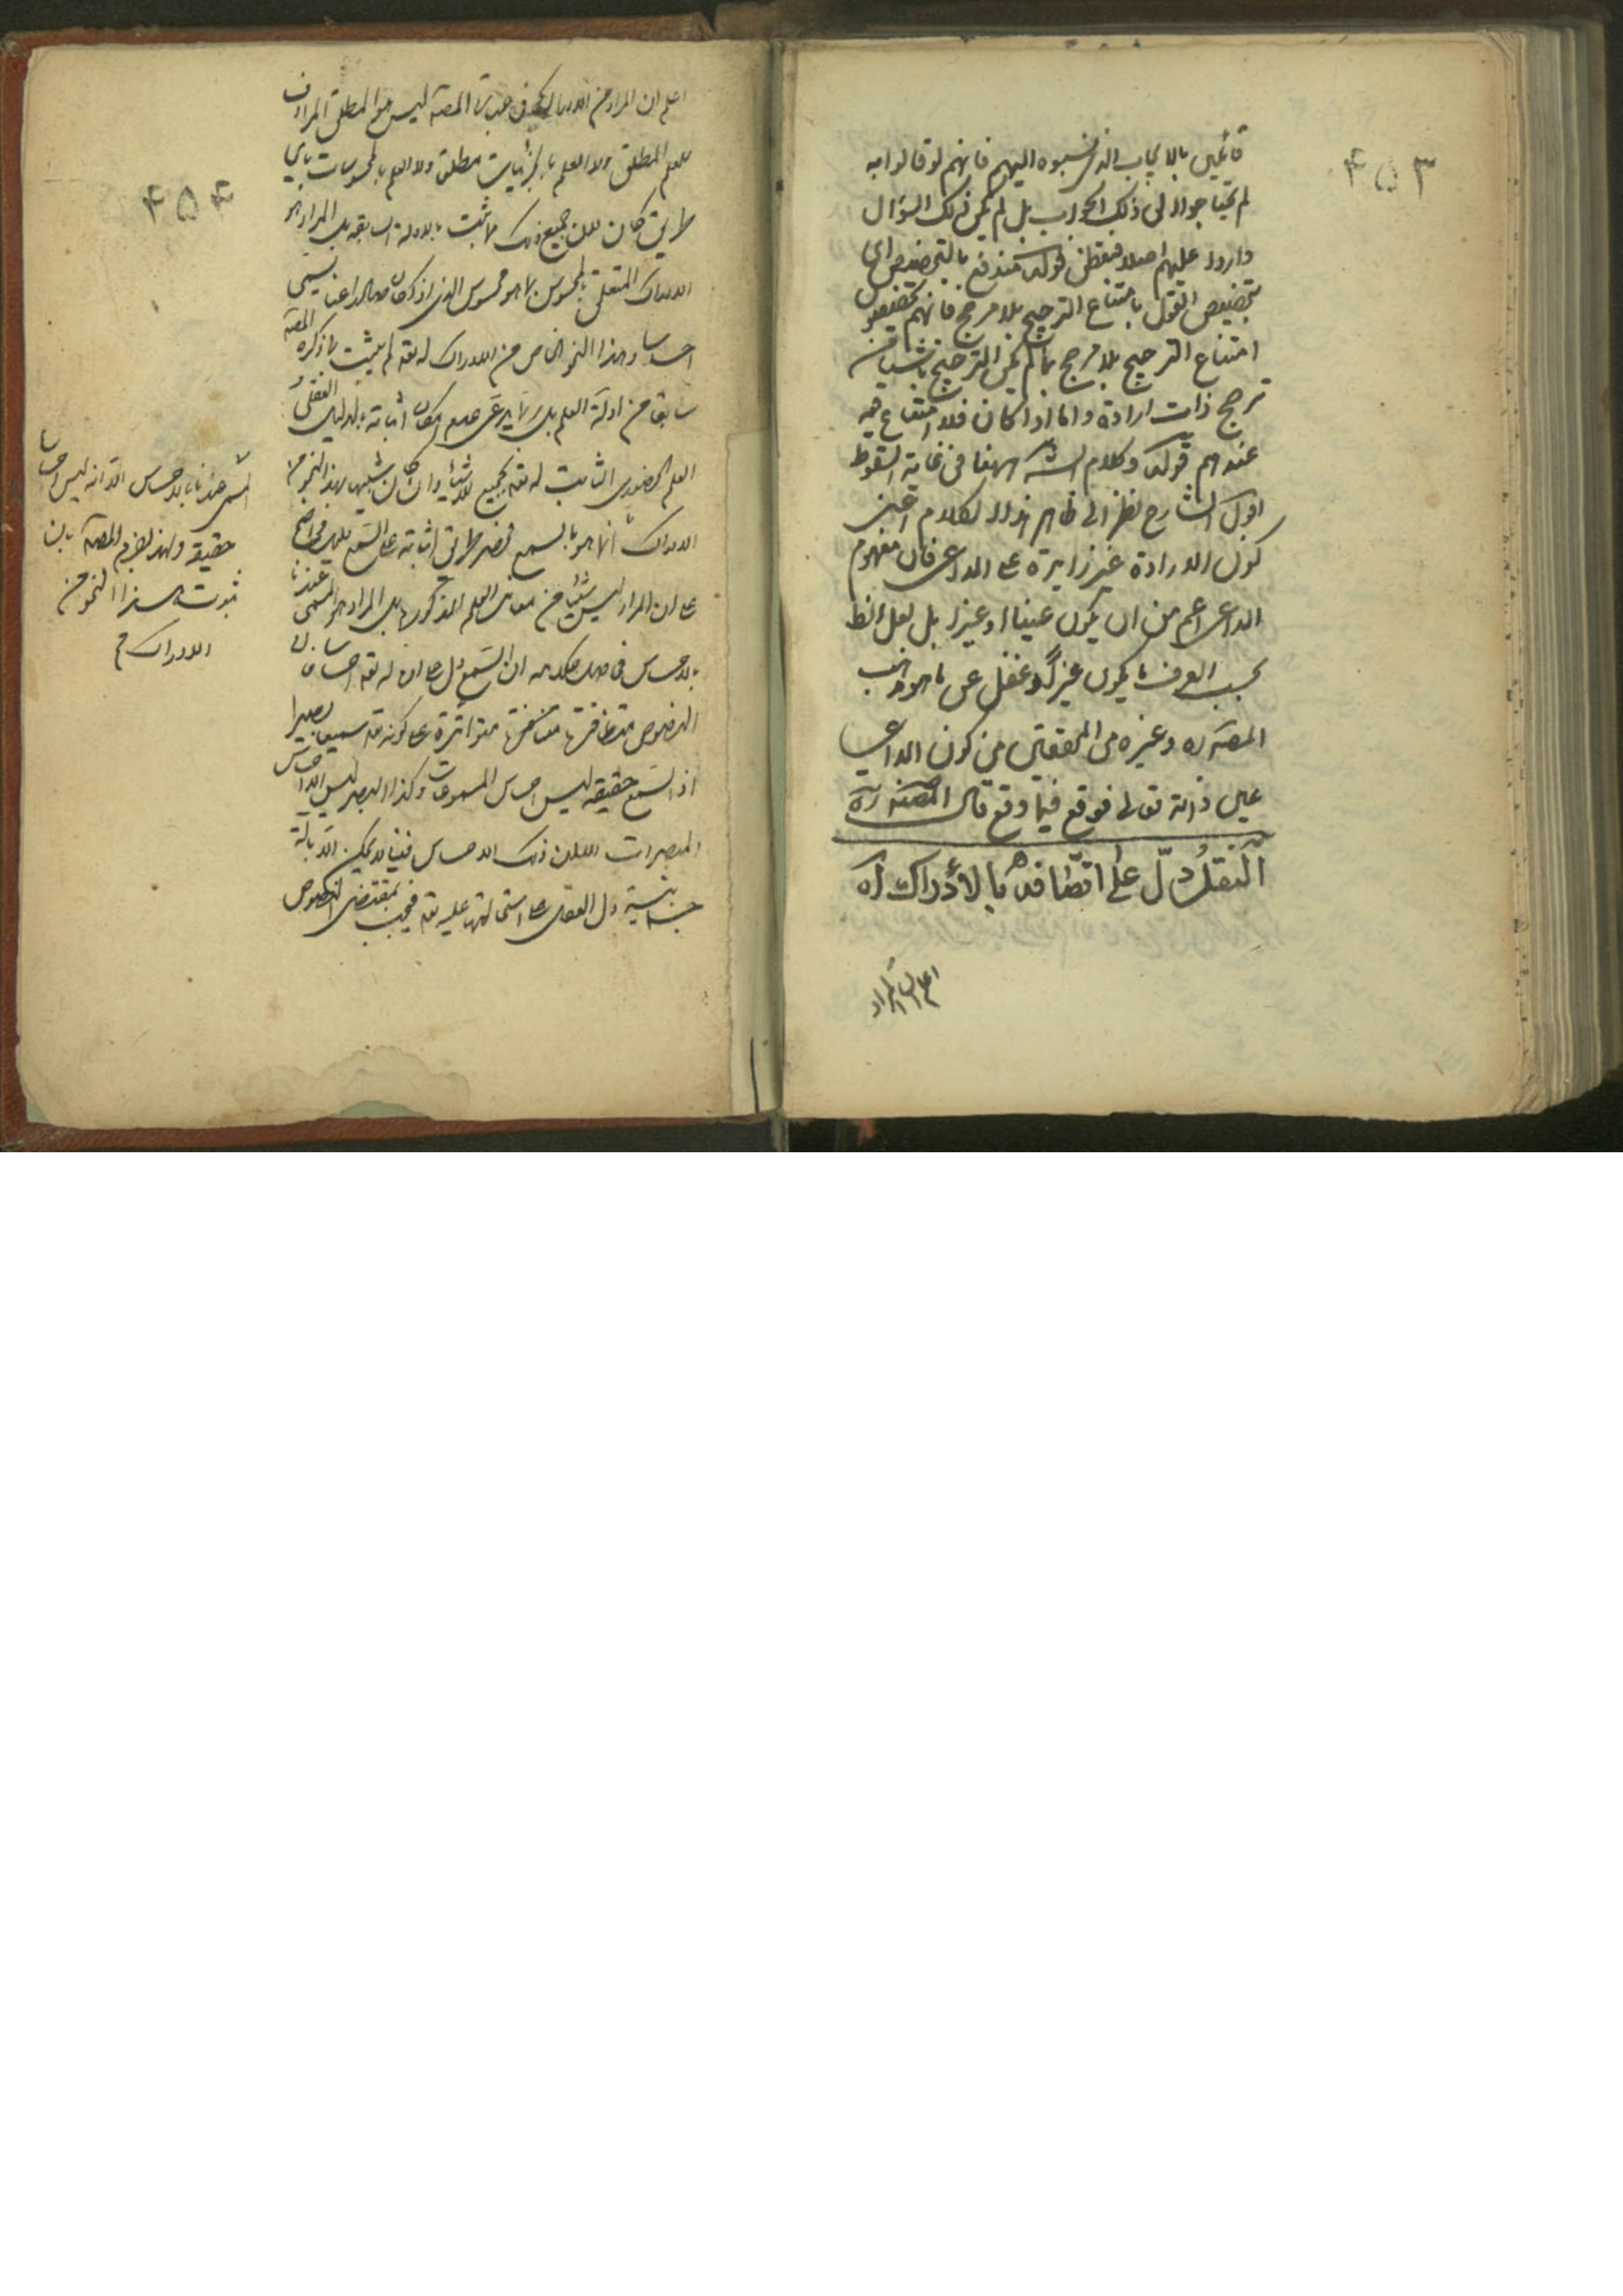 ۴۵۳
قائلين بالايجاب الذى نسبوه اليهم فانهم لو قالوا به
لم يحتاجوا الى ذلك الجواب بل لم يكن ذلك السؤال
واردا عليهم اصلا فتفطن قوله مندفع بالتخصيص اى
بتخصيص القول بامتناع الترجيح بلا مرجح فانهم يخصصون
امتناع الترجيح بلا مرجح بما لم يكن الترجيح ناشيا من
مرجح ذات ارادة واما اذا كان فلا امتناع فيه
عندهم قوله وكلام الشه ههنا فى غاية السقوط
اقول الشارح نظر الى ظاهر هذا الكلام اعنى
كون الارادة غير زايدة على الداعى فان مفهوم
الداعى اعم من ان يكون عينا او غيرا بل لعل الظ
بحسب العرف ما يكون غيرا وغفل عن ما هو مذهب
المصنه ره وغيره من المحققين من كون الداعى
عين ذاته تعالى فوقع فيما وقع قال المصنه ره
النقل دلّ على اتصافه بالادراك اه
اعلم ان المراد
۴۵۴
اعلم ان المراد من الادراك فى عبارة المصه ليس هو المطلق المرادف
للعلم المطلق ولا العلم بالجزئيات مطلق ولا العلم بالمحسوسات باى
طريق كان لان جميع ذلك مما ثبت بالادلة السابقة بل المراد هو
الادراك المتعلق بالمحسوس بما هو محسوس الذى اذ كان لنا يسمى
احساسا وهذا النحو الخاص من الادراك له تعه لم يثبت بما ذكره المصه
سابقا من ادلة العلم بل ربما يدعى عدم امكان اثباته بالدليل العقلى
العلم الحضورى الثابت له تعه بجميع الاشياء وان كان شبيها بهذا النحو من
الادراك انما هو بالسمع فحصر طريق اثباته على السمع دليل واضح
على ان المراد ليس شيئا من معانى العلم المذكورة بل المراد هو المسمى عندنا
بالاحساس فى ان السمع دل على ان له تعه احساسا لان
النصوص متظافرة متواترة على كونه تعه سميعا بصيرا
اذ السمع حقيقة ليس احساس المسموعات وكذا البصر ليس الا احساس
المبصرات الا ان ذلك الاحساس فينا لا يمكن الا بالة
جسمانية دل العقل على استحالتها عليه تعه فيجب بمقتضى النصوص
المسمى عندنا بالاحساس الا انه ليس احساسا
حقيقة ولهذا المصه بان
ثبوت هذا النحو من
الادراك م